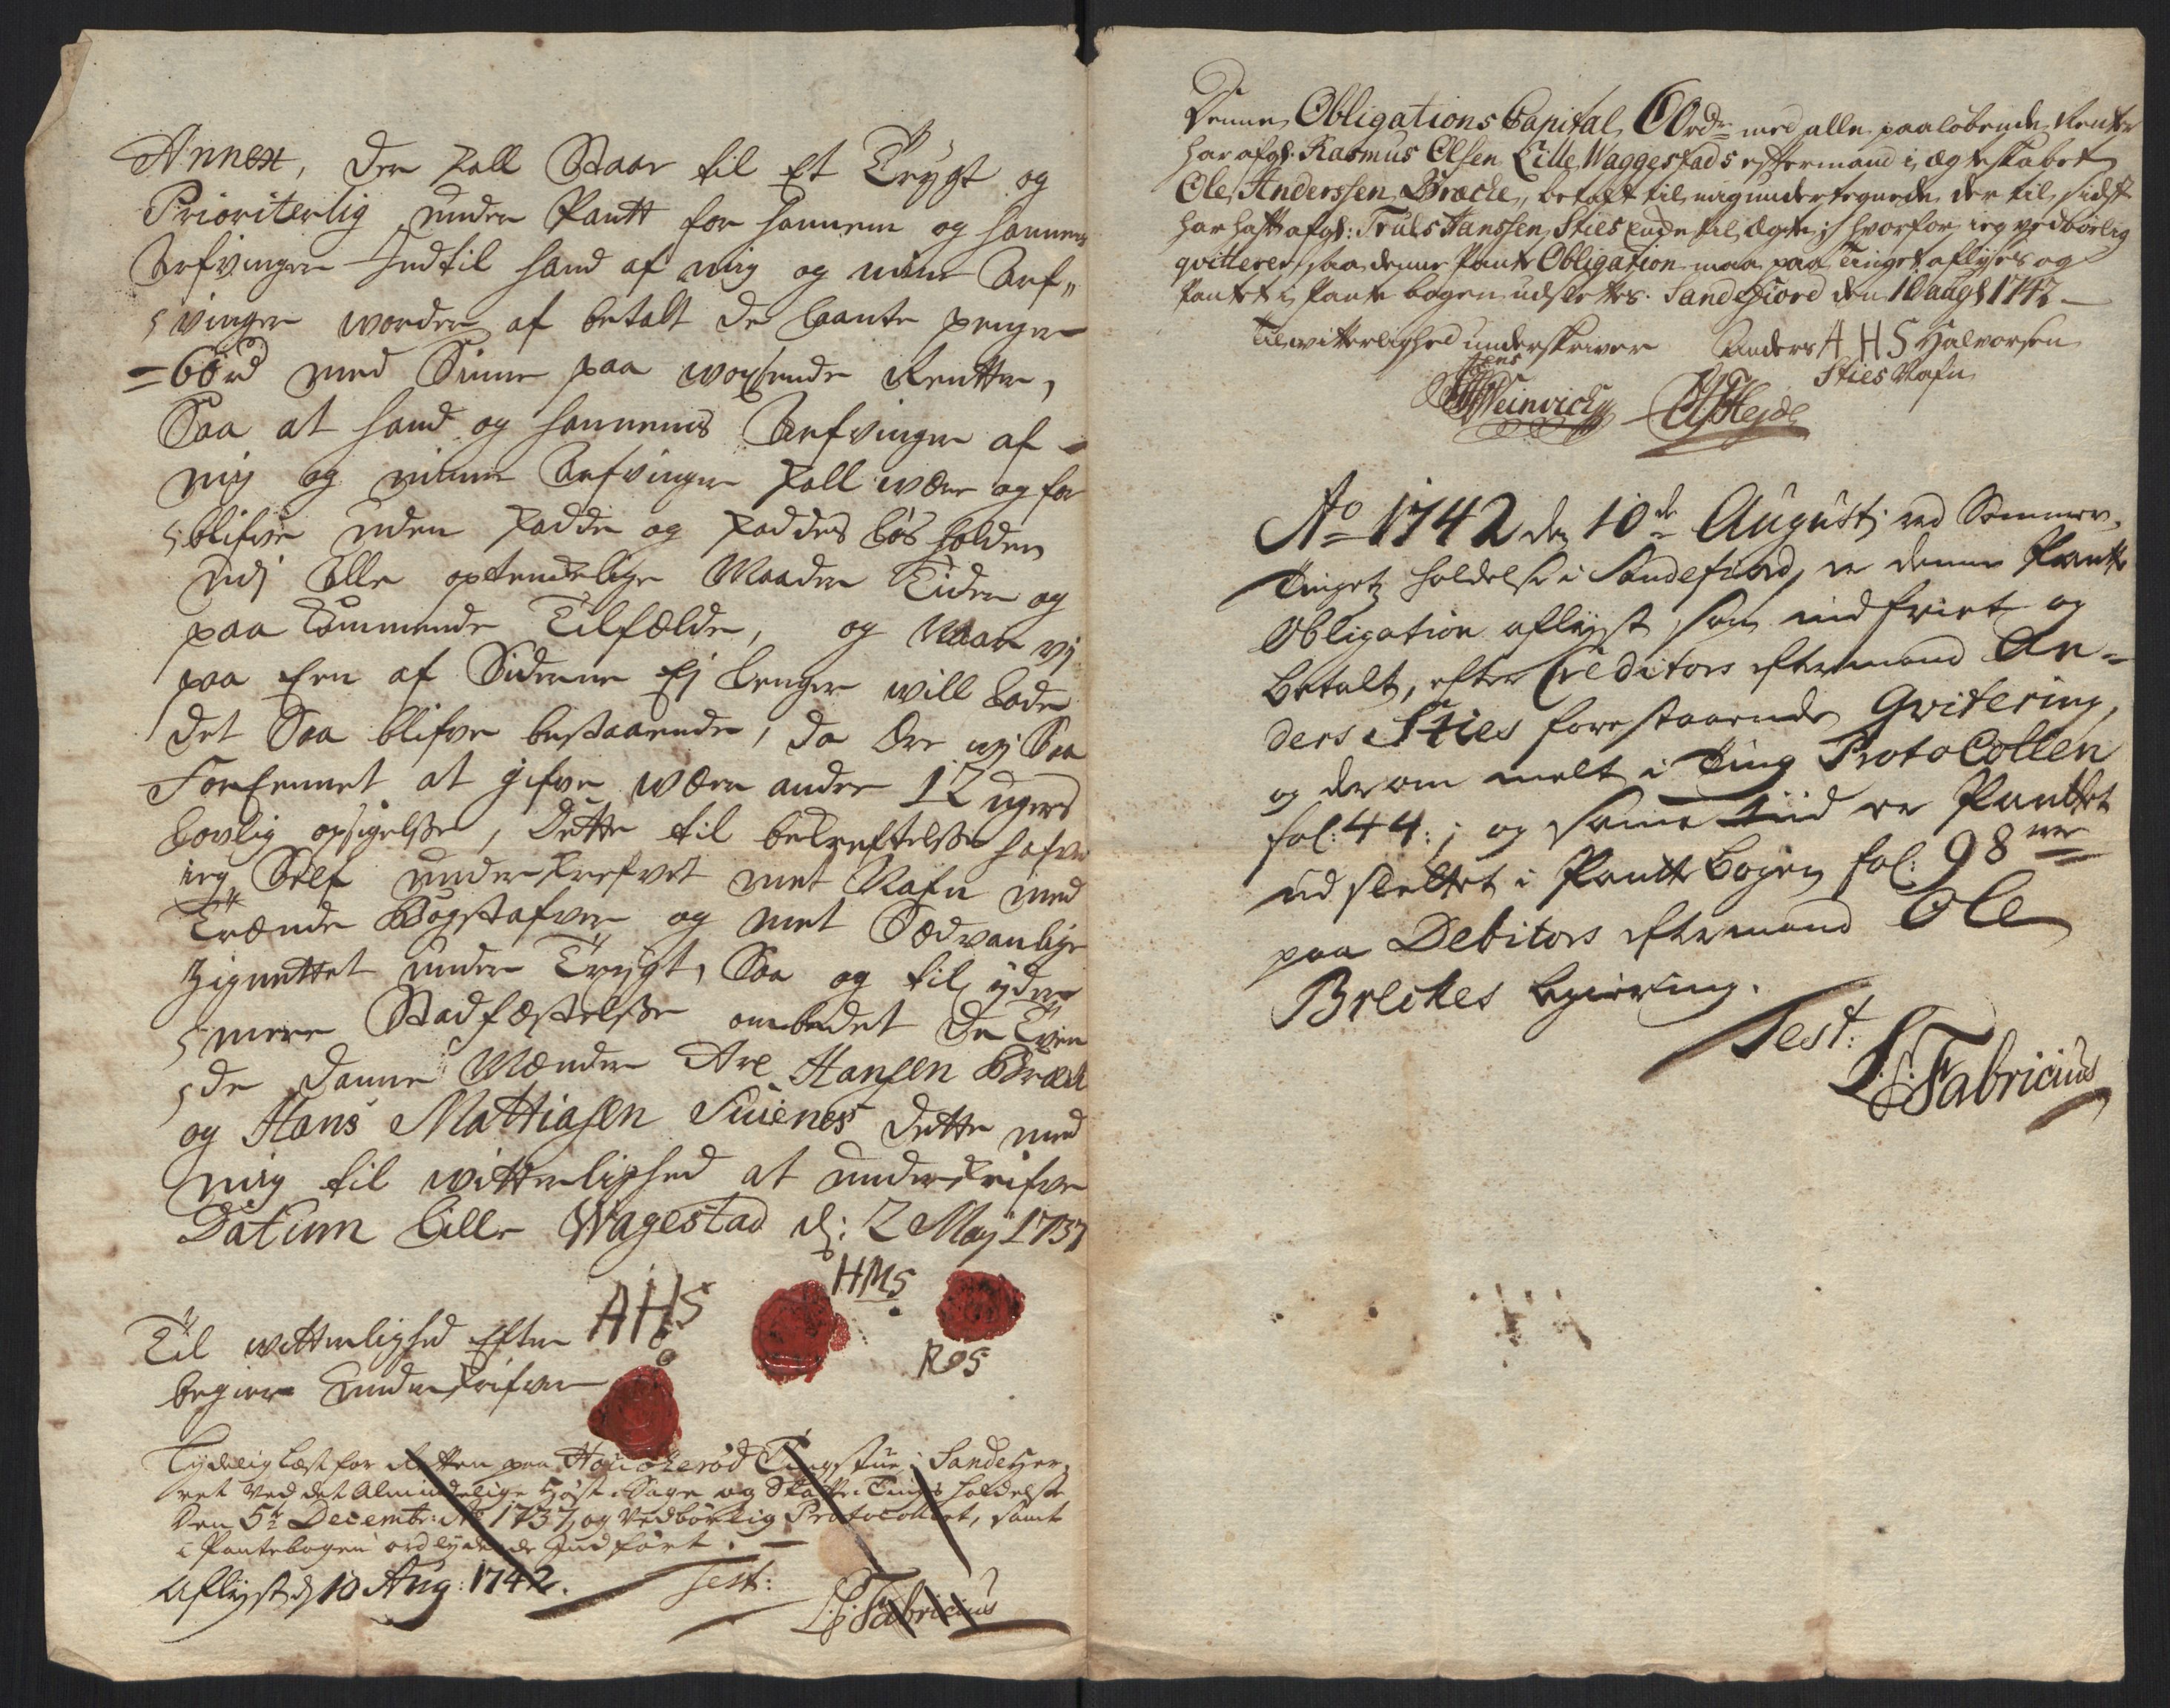 Annex, der skall Staar til Et Trygt og
Prioriterlig under Pantt for hannem og hannem
Arfvinger Indtil hand af mig og mine Arf„
vinger worder af betalt de laante penger
=60rd med Sinne paa woxende Rentter,
Saa at hand og hannems Arfvinger af
mig og minne Arfvinger skall være og for
blifve uden skadde og skaddes løs holden
udj alle optenckelige Maader Tiden og
paa kommende Tilfælde, og Naar vj
paa Een af Siderne Ej lenger will lade
det Saa blifve bestaaende, da Ere vj Saa
Forkennet at gifve wær andre 12 ugers
lovlig opsigelsse, Dette til bekreftelsse hafver
ieg Self underskrefvet met Nafn med
Trænde Bogstafver og met Sædvanlige
Zignettet under Trygt, Saa og til yder
mere Stadfæstelsse ombedet de Tven
de danne Mænder Are Hansen Bræck
og Hans Mattiasen Suienes dette med
mig til witterlighed at underskrifve
Datum Lille Wagestad d: 2 Maij 1737
AHS HMS
ROS
Til witterlighed Efter
begier underskrifver
Tydelig læst for Retten paa Houckerød Tingstue i SandeHer„
ret ved det Almindelige Høste Sage og Skatte Tings holdelse
Den 5te Decembr: Ao 1737, og vedbørlig Protocolleret, samt
i Pantebogen ordlydende Indført.
Aflyst d 10 Aug: 1742. Test:
L: S: Fabricius
Denne Obligations Capital 60rdr med alle paaløbende Renter
har afgl: Rasmus Olsen Lille Waggestads eftermand i ægteskabet
Ole Anderssen Bræcke, betalt til mig undertegnede, der til sidst
har haft afgl: Truls Hanssen Sties Enke til ægte; hvorfor ieg vedbørlig
qvitterer, saa denne Pante Obligation maa paa Tinget aflyses og
Pantet i Pante bogen udslettes. Sandefiord den 10 augt 1742
Til witterlighed underskriver Anders A H S Halvorsen
Sties Nafn
Jens Weinvich Heyde
Ao 1742 den 10de Augusti ved Sommer
Tingetz holdelse i Sandefiord, er denne Pantte
Obligation aflyst, som indfriet og
betalt, efter Creditors eftermand An=
ders Sties forestaaende Qvitering,
og derom melt i Ting ProtoCollen
fol: 44:; og samme tiid er Panttet
udslettet i Pantte Bogen fol: 98
paa Debitors eftermand Ole
Breckes begiering.
Test:
L: S: Fabricius